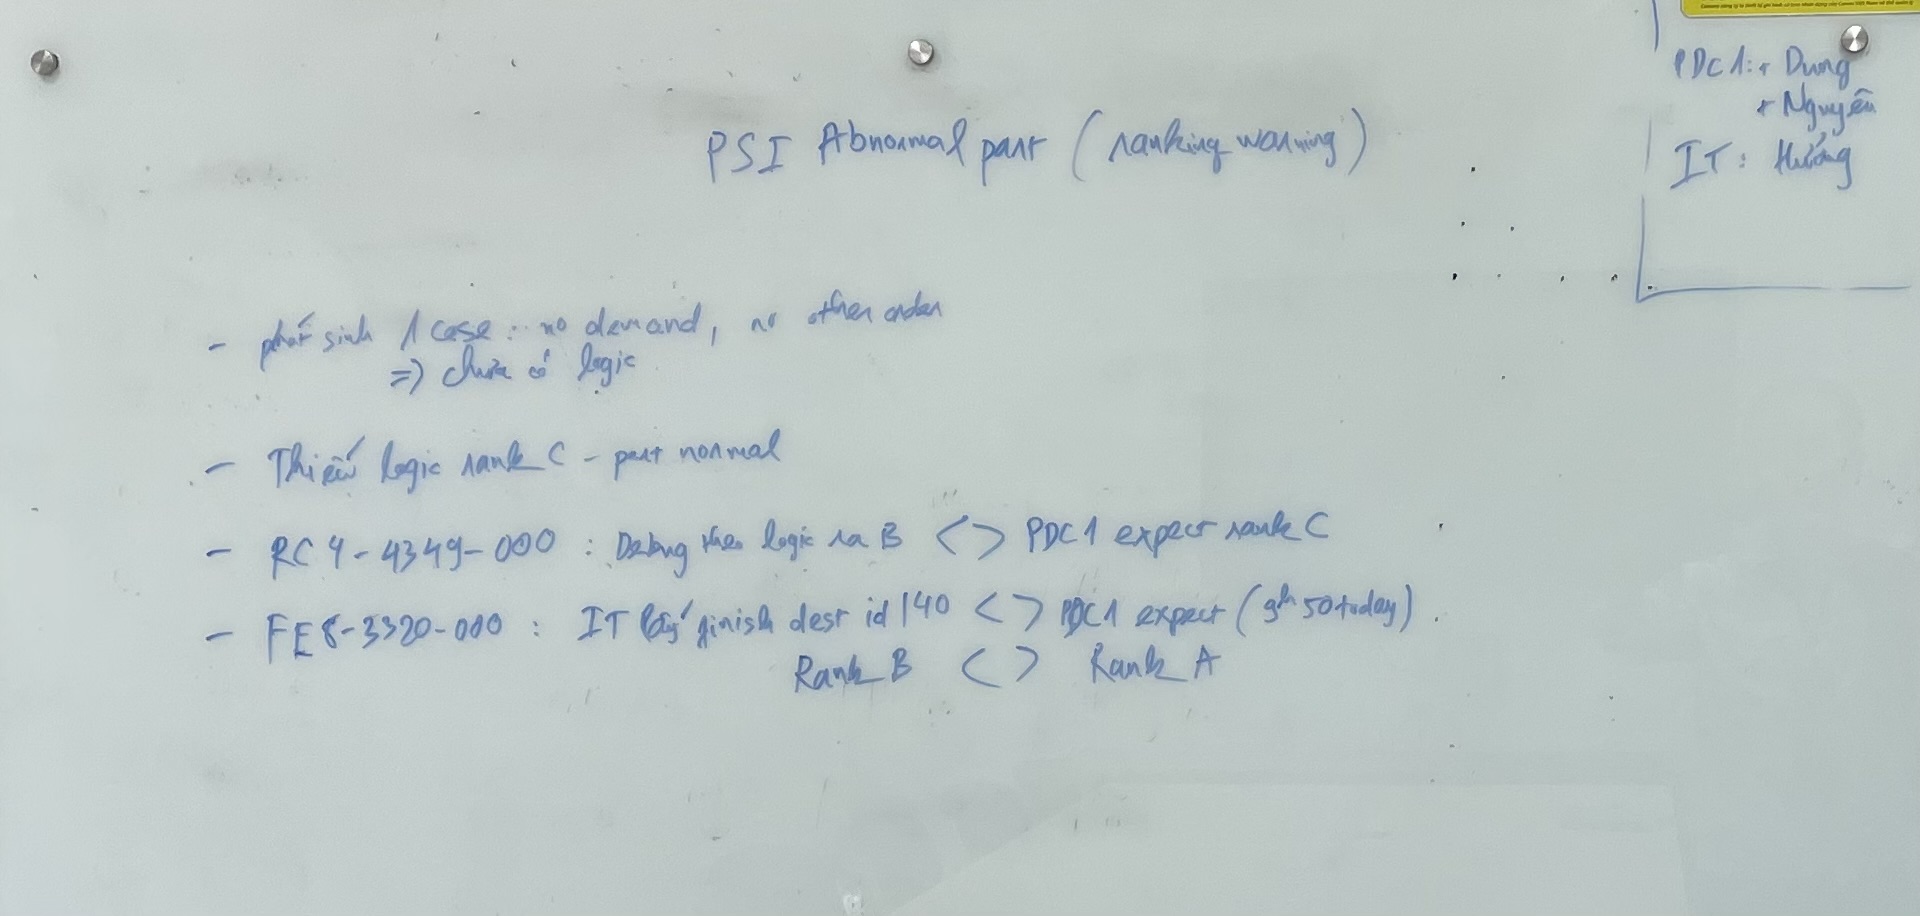 PDC1: + Dung
+ Nguyên
IT: Hướng
PSI Abnormal part (ranking warning)
- phát sinh 1 case: no demand, no other order
=> chưa có logic
- Thiếu logic rank C - part normal
- RC4-4349-000 : Debug theo logic ra B <> PDC1 expect rank C
- FE8-3320-000 : IT lấy finish dest id 140 <> PDC1 expect (9h 50 today).
Rank B <> Rank A